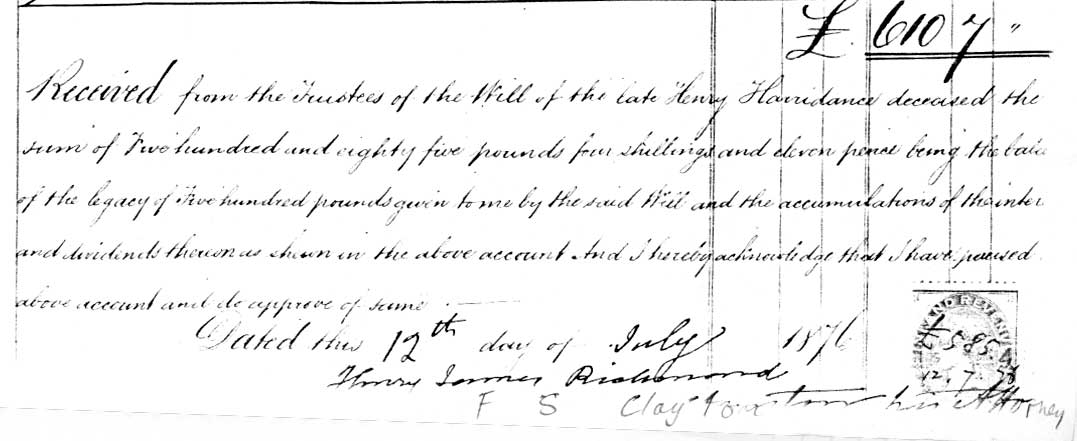 £ 610 7 "
Received from the Trustees of the Will of the late Henry Harridance deceased the
sum of Five hundred and eighty five pounds four shillings and eleven pence being the
of the legacy of Five hundred pounds given to me by the said Will and the accumulations of the inter
and dividends thereon as shewn in the above account And I hereby acknowledge that I have perused
above account and do approve of same
Dated this 12th day of July 1876
Henry James Richmond
F S Clay his Attorney
INLAND REVENUE
585
12. 7.